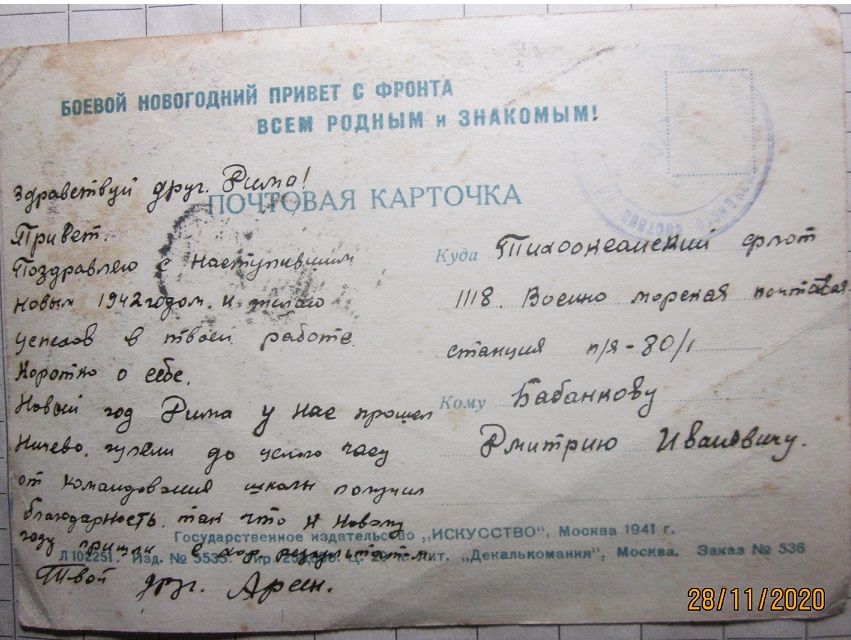 БОЕВОЙ НОВОГОДНИЙ ПРИВЕТ С ФРОНТА
ВСЕМ РОДНЫМ и ЗНАКОМЫМ!
Здравствуй друг. Рима!
ПОЧТОВАЯ КАРТОЧКА
Привет.
Поздравляю с наступившим
новым 1942 годом. и желаю
успехов в твоей работе.
Коротко о себе.
Новый год Рима у нас прошел
ничево. гуляли до часу
от командования школы получил
благодарность. так что к Новому
году пришли с хор. результатом
Твой друг. Арсен.
Куда Тихоокеанский флот
1118. Военно морская почтовая
станция п/я-80/1
Кому Бабанкову
Дмитрию Ивановичу.
Государственное издательство „ИСКУССТВО“, Москва 1941 г.
Л102251. Изд. № 5535. Лит. „Декалькомания“, Москва. Заказ № 536
28/11/2020